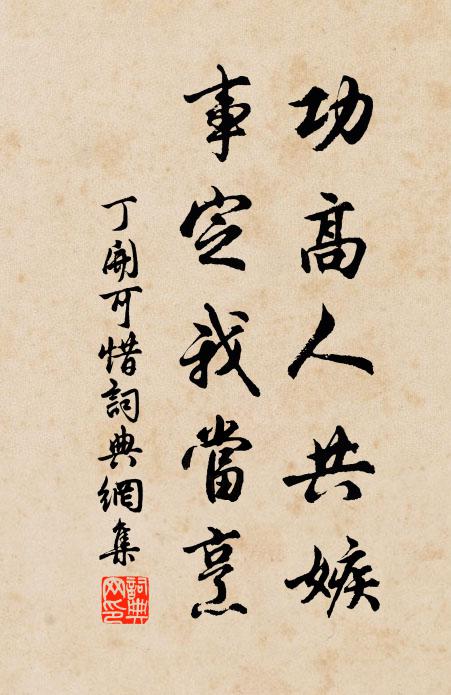 功高人共嫉
事定我當烹
丁開可惜詞典網集
詞典網印